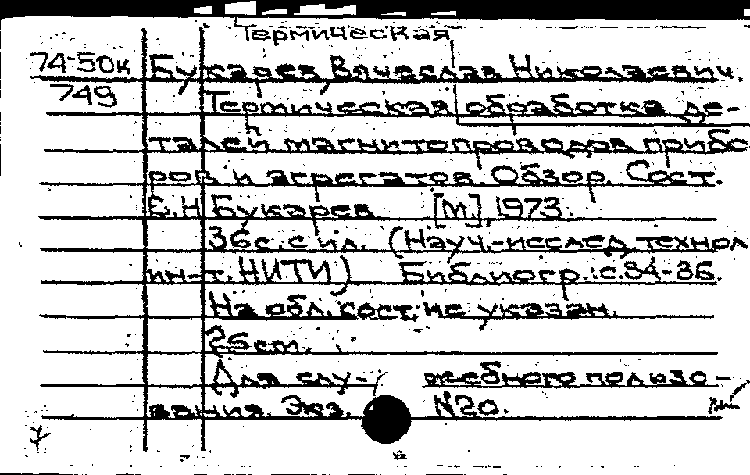 Термическая
74-50к Букарев Вячеслав Николаевич.
749 Термическая обработка де-
талей магнитопроводов прибо
ров и агрегатов. Обзор. Сост.
В.Н. Букарев [М.], 1973.
36с. с ил. (Науч.-исслед. технол
ин-т. НИТИ) Библиогр.: с.34-36.
На обл. сост. не указан.
26см.
Для слу- жебного пользо-
вания. Экз. №20.